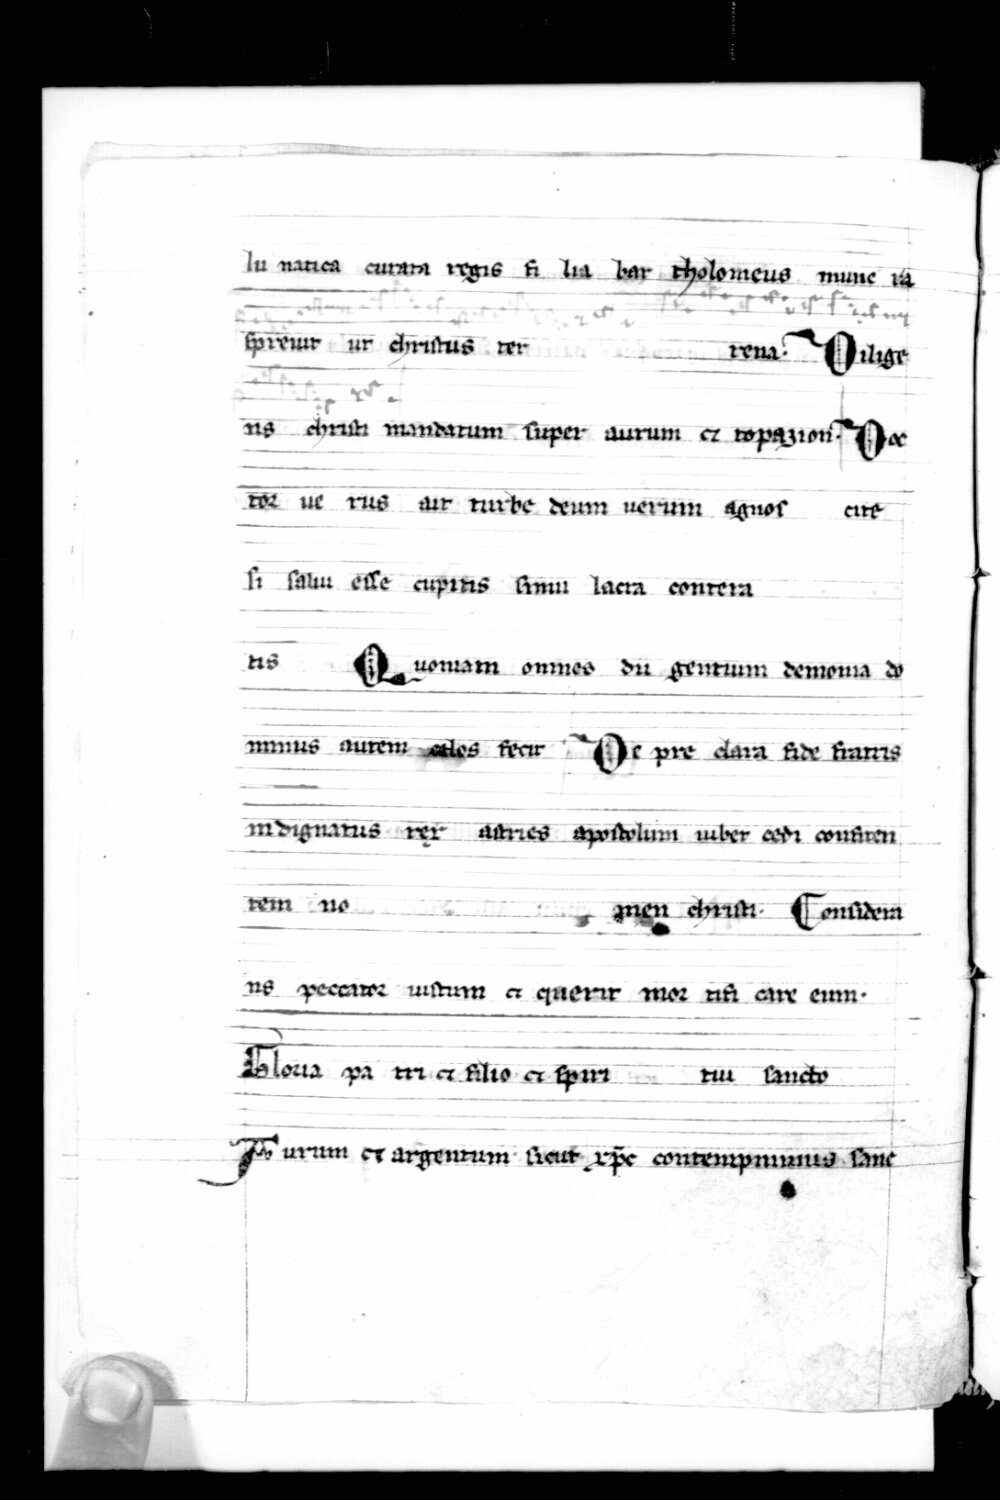 lu natica curata regis fi lia bar tholomeus mune ra
spreuit ut christus ter rena. Dilige
ns christi mandatum super aurum et topazion. Doc
tor ue rus ait turbe deum uerum agnos cite
si salui esse cupitis simu lacra contera
tis Quoniam omnes dii gentium demonia do
minus autem celos fecit De pre clara fide fratris
indignatus rex astries apostolum iubet cedi confiten
tem no men christi. Considera
ns peccator iustum et querit mor tifi care eum.
Gloria pa tri et filio et spiri tui sancto
Aurum et argentum sicut xpc contempnimus sanc